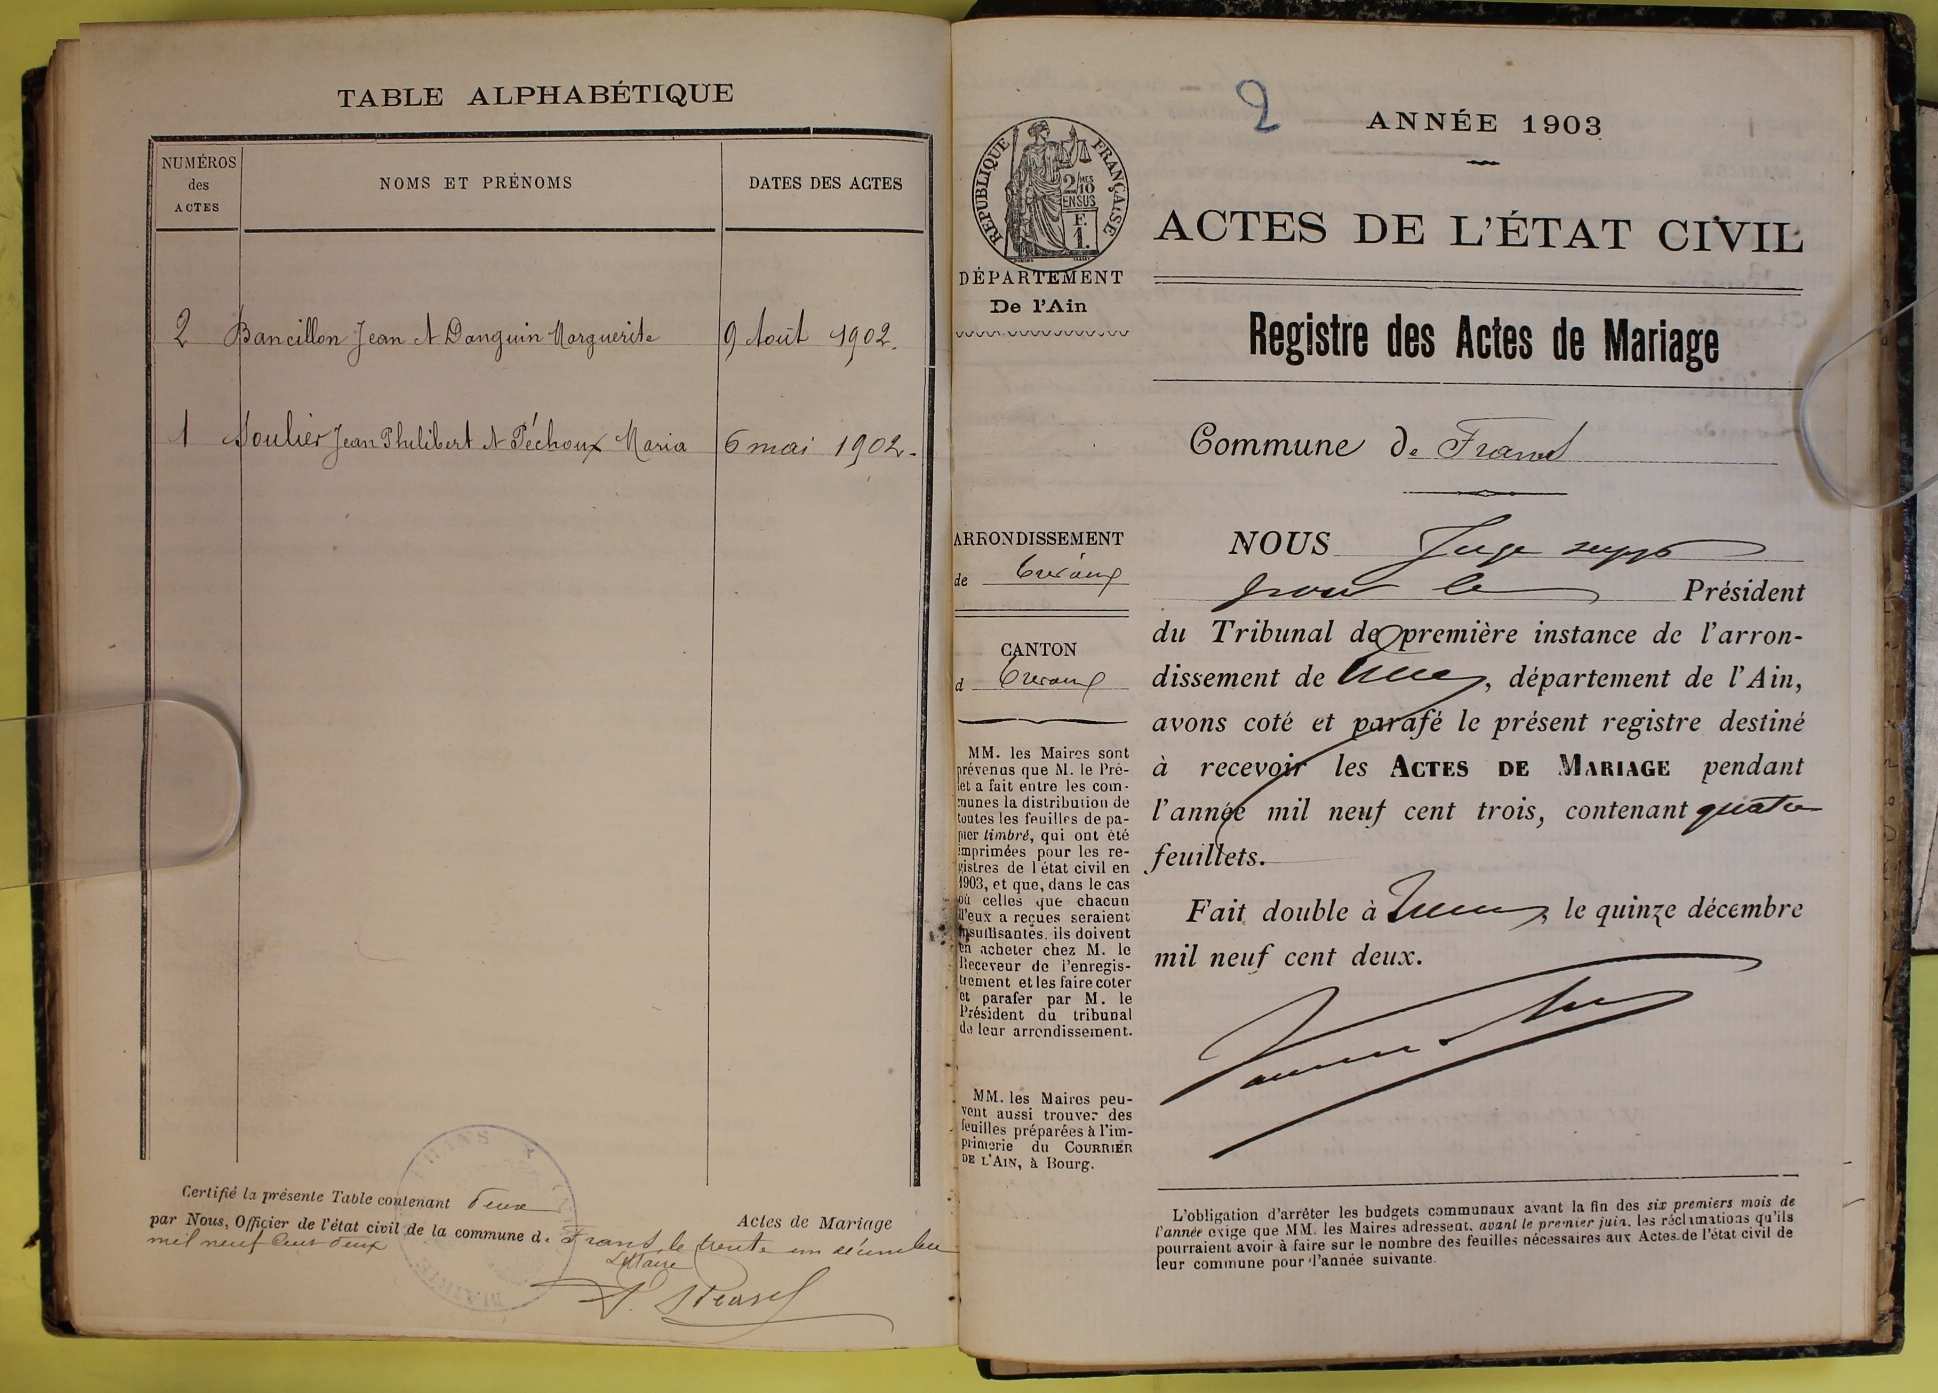 TABLE ALPHABÉTIQUE
NUMÉROS
des
ACTES
NOMS ET PRÉNOMS
DATES DES ACTES
2 Bancillon Jean et Danguin Marguerite 9 Août 1902.
1 Soulier Jean Philibert et Péchoux Maria 6 mai 1902.
Certifié la présente Table contenant deux
Actes de Mariage
par Nous, Officier de l'état civil de la commune de Frans le trente un décembre
mil neuf cent deux
Le Maire
2
ANNÉE 1903
RÉPUBLIQUE FRANÇAISE
2/10
EN SUS
F.
1.
DÉPARTEMENT
De l'Ain
ACTES DE L'ÉTAT CIVIL
Registre des Actes de Mariage
Commune de Frans
ARRONDISSEMENT
de Trévoux
CANTON
d Trévoux
MM. les Maires sont
prévenus que M. le Pré-
fet a fait entre les com-
munes la distribution de
toutes les feuilles de pa-
pier timbré, qui ont été
imprimées pour les re-
gistres de l'état civil en
1903, et que, dans le cas
où celles que chacun
d'eux a reçues seraient
insuffisantes, ils doivent
en acheter chez M. le
Receveur de l'enregis-
trement et les faire coter
et parafer par M. le
Président du tribunal
de leur arrondissement.
MM. les Maires peu-
vent aussi trouver des
feuilles préparées à l'im-
primerie du COURRIER
DE L'AIN, à Bourg.
NOUS Juge supp
pour le Président
du Tribunal de première instance de l'arron-
dissement de Trévoux, département de l'Ain,
avons coté et parafé le présent registre destiné
à recevoir les ACTES DE MARIAGE pendant
l'année mil neuf cent trois, contenant quatre
feuillets.
Fait double à Trévoux, le quinze décembre
mil neuf cent deux.
L'obligation d'arrêter les budgets communaux avant la fin des six premiers mois de
l'année exige que MM. les Maires adressent, avant le premier juin, les réclamations qu'ils
pourraient avoir à faire sur le nombre des feuilles nécessaires aux Actes de l'état civil de
leur commune pour l'année suivante.